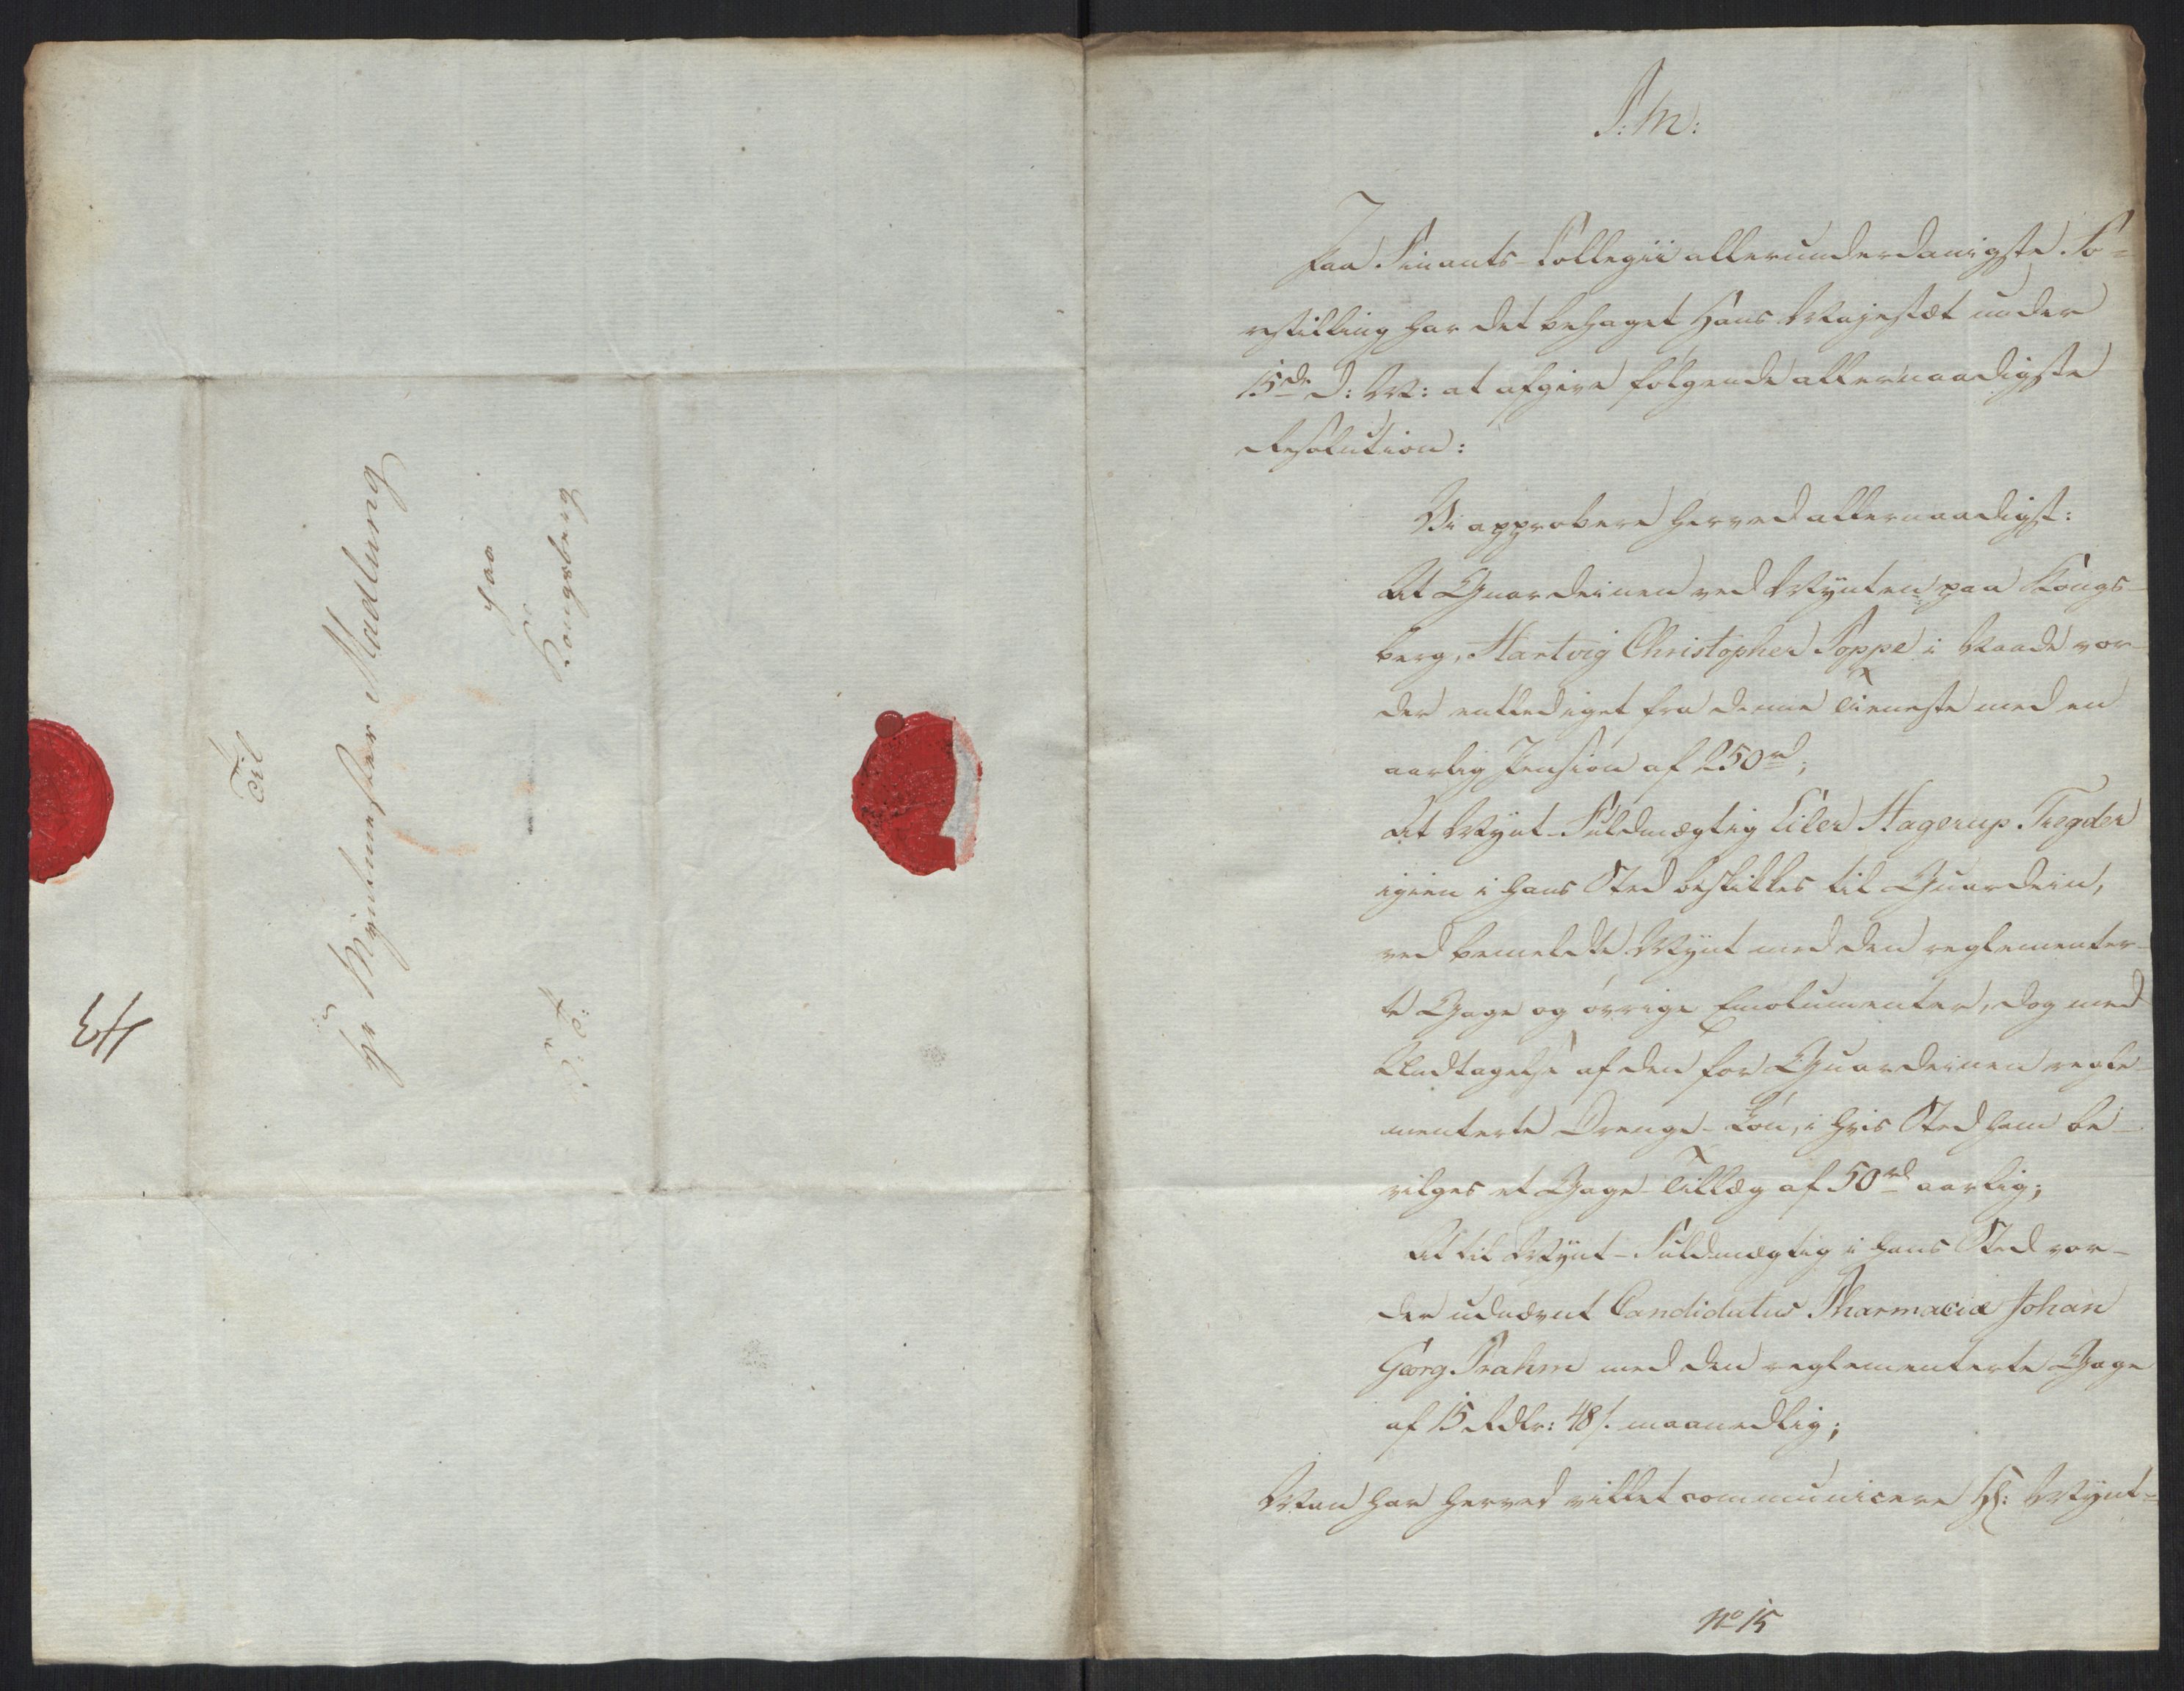 Til
Hr Myntmester Madlung
paa
Kongsberg
P: M:
Paa Finants-Collegii allerunderdanigste Fo-
restilling har det behaget Hans Majestæt under
15de d: M: at afgive følgende allernaadigste
Resolution:
Vi approbere herved allernaadigst:
At Guardeinen ved Mynten paa Kongs-
berg, Hartvig Christopher Poppe i Naade vor-
der entlediget fra denne Tieneste med en
aarlig Pension af 250 rd;
At Mynt-Fuldmægtig Eiler Hagerup Tregder
igien i hans Sted beskikkes til Guardein,
ved bemeldte Mynt med den reglementer-
te Gage og øvrige Emolumenter, dog med
Undtagelse af den for Guardeinen regle-
menterte Drenge-Løn, i hvis Sted ham be-
vilges et Gage-Tillæg af 50 rd aarlig;
At til Mynt-Fuldmægtig i hans Sted vor-
der udnævnt Candidatus Pharmaciæ Johan
Georg Prahm med den reglementerte Gage
af 15 Rdlr: 48 s. maanedlig;
Man har herved villet communicere Hr: Mynt-
No 15